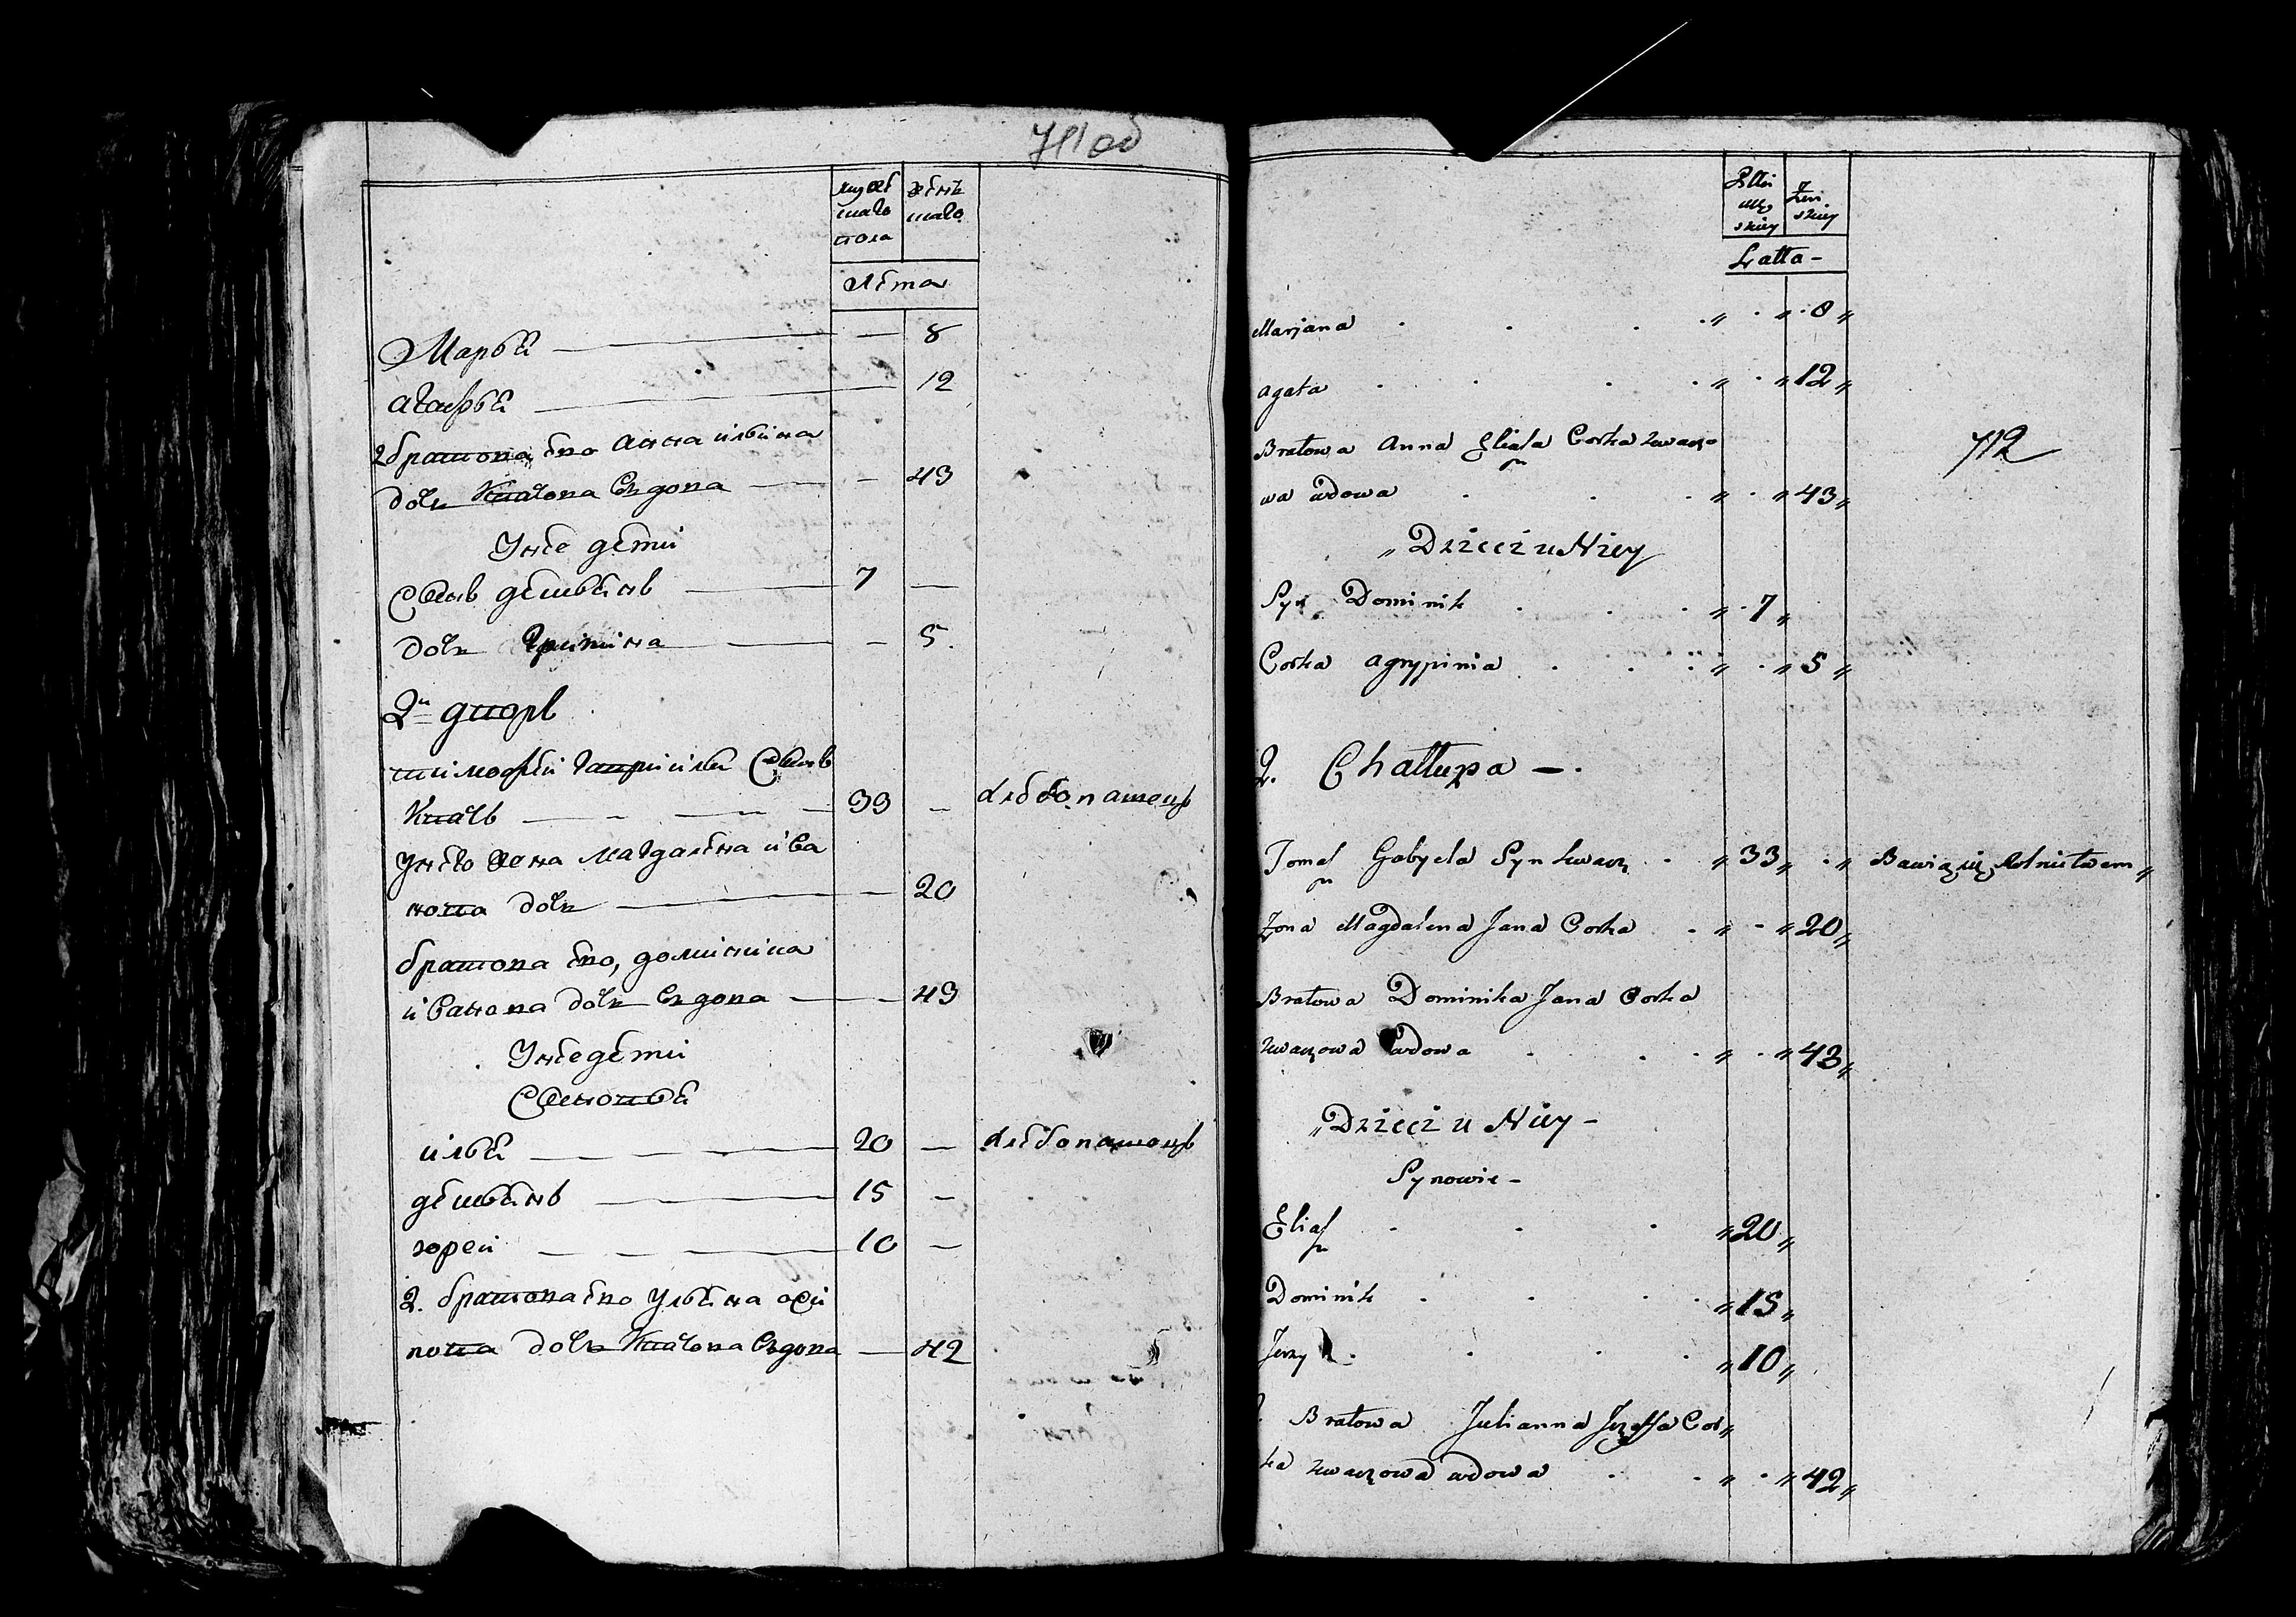 711 об
мужеска
го
пола
женска
го
лѣта
Марья — — 8
Агафья — 12
2 братова его Анна ильина
дочь Квачова вдова — — 43
У нее дети
Сынъ демьянъ — 7 —
дочь Агрипина — — 5
2й дворъ
тимофей гаврииловъ Сынъ
Квачъ — 33 — хлебопашецъ
У него жена Магдалена ива
нова дочь — — 20
братова его, доминика
иванова дочь вдова — — 43
У нее дети
Сыновья
илья — 20 — хлебопашецъ
демьянъ — 15 —
юрей — 10 —
2. братова его Ульяна оси
пова дочь Квачова вдова — 42
Płci
mę
skiey
Żeń
skiey
Latta -
Marjana . . . . „ . „ . 8 „
Agata . . . . „ . „ 12 „
Bratowa Anna Eliasza Corka Kwaczo
wa wdowa . . . „ . „ 43 „
712
„ Dzieci u Niey
Syn Dominik . . . „ . 7 „
Corka Agrypinia . . . „ . „ 5 „
2. Chattupa — .
Tomasz Gabryela Syn Kwacz . „ 33 „ . „ Bawią się Rolnictwem „
Żona Magdalena Jana Corka . „ - „ 20 „
Bratowa Dominika Jana Corka
Kwaczowa wdowa . . . „ . „ 43 „
„ Dzieci u Niey -
Synowie -
Eliasz . . . „ 20 „
Dominik . . . „ 15 „
Jerzy . . . . „ 10 „
Bratowa Julianna Jozeffa Cor „
ka Kwaczowa wdowa . . „ . „ 42 „